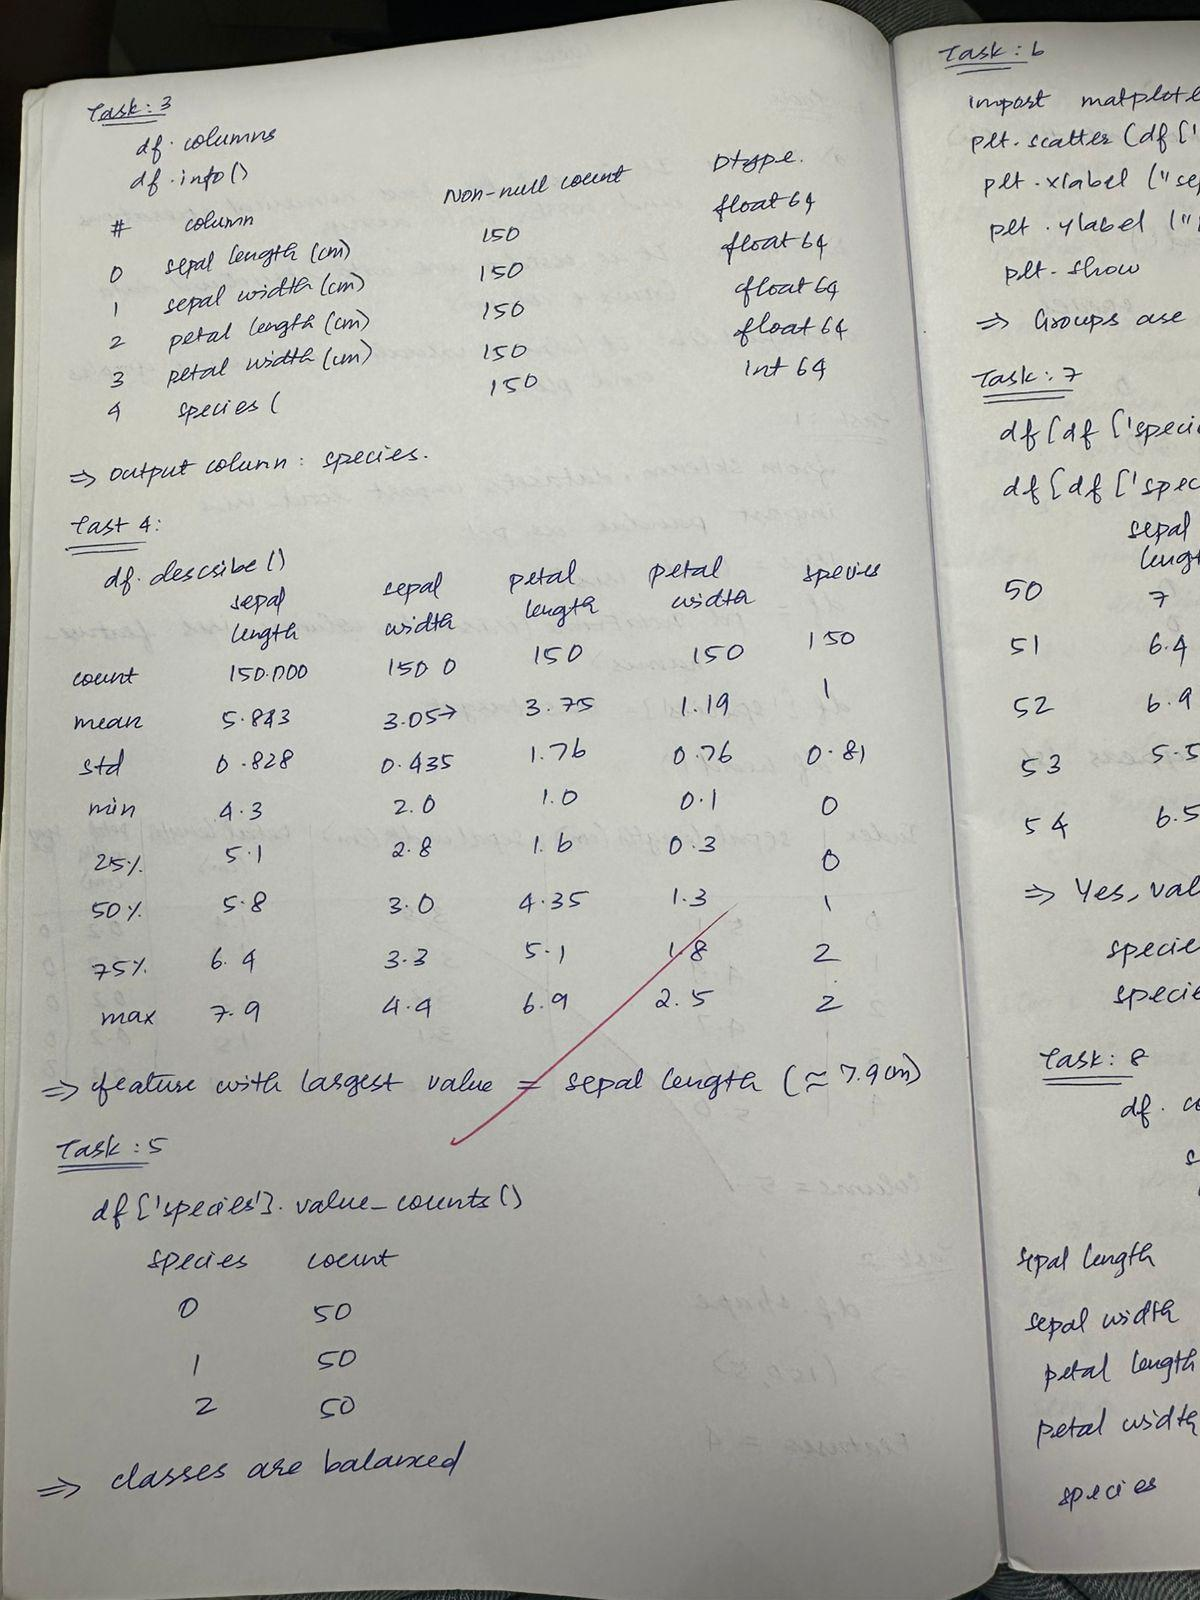 Task: 3
df. columns
df. info()
# column Non-null count Dtype.
0 sepal length (cm) 150 float64
1 sepal width (cm) 150 float64
2 petal length (cm) 150 float64
3 petal width (cm) 150 float64
4 species ( 150 int 64
⇒ output column: species.
Tast 4:
df. describe()
sepal length sepal width petal length petal width species
count 150.000 150 0 150 150 150
mean 5.843 3.057 3.75 1.19 1
std 0.828 0.435 1.76 0.76 0.81
min 4.3 2.0 1.0 0.1 0
25% 5.1 2.8 1.6 0.3 0
50% 5.8 3.0 4.35 1.3 1
75% 6.4 3.3 5.1 1.8 2
max 7.9 4.4 6.9 2.5 2
⇒ feature with largest value = sepal length (≈ 7.9cm)
Task: 5
df['species']. value_counts()
species count
0 50
1 50
2 50
⇒ classes are balanced
Task: 6
import matplotl
plt. scatter (df['
plt. xlabel ("sep
plt. ylabel ("
plt. show
⇒ Groups are
Task: 7
df[df['specie
df[df['spec
sepal
lengt
50 7
51 6.4
52 6.9
53 5.5
54 6.5
⇒ Yes, val
specie
specie
Task: 8
df. co
s
sepal length
sepal width
petal length
petal width
species